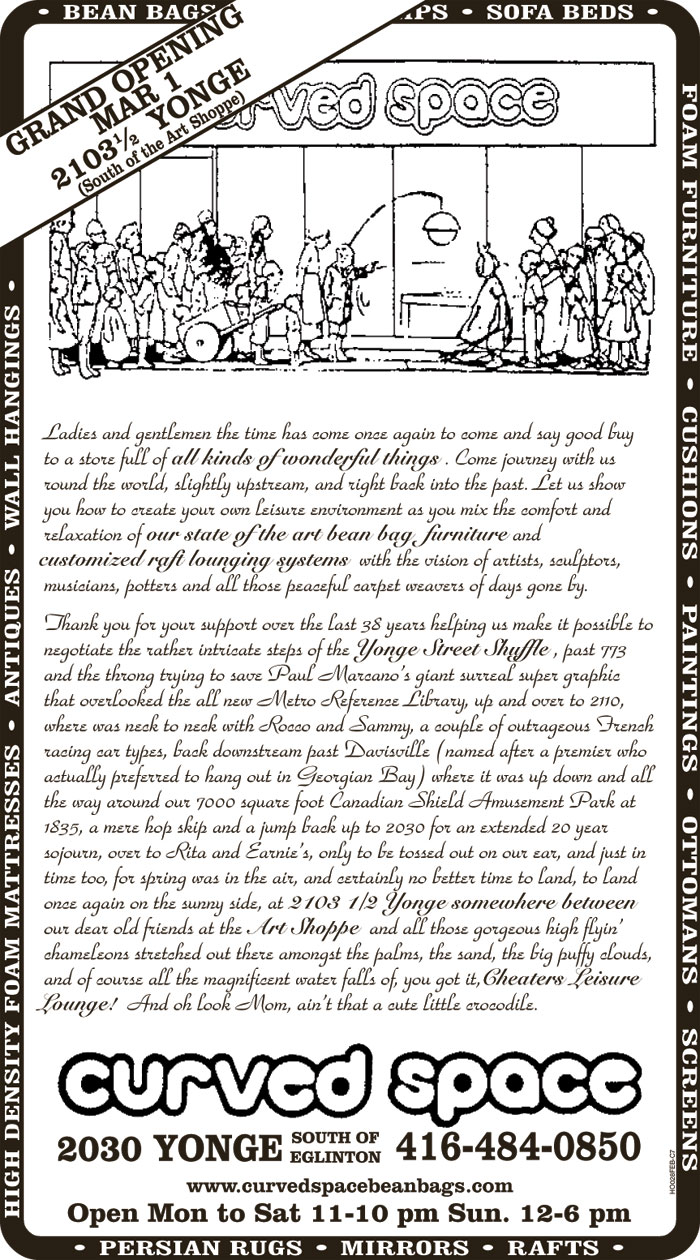 • BEAN BAGS
PS • SOFA BEDS •
GRAND OPENING
MAR 1
2103 1/2 YONGE
(South of the Art Shoppe)
rved space
FOAM FURNITURE • CUSHIONS • PAINTINGS • OTTOMANS • SCREENS
HIGH DENSITY FOAM MATTRESSES • ANTIQUES • WALL HANGINGS •
Ladies and gentlemen the time has come once again to come and say good buy
to a store full of all kinds of wonderful things . Come journey with us
round the world, slightly upstream, and right back into the past. Let us show
you how to create your own leisure environment as you mix the comfort and
relaxation of our state of the art bean bag furniture and
customized raft lounging systems with the vision of artists, sculptors,
musicians, potters and all those peaceful carpet weavers of days gone by.
Thank you for your support over the last 38 years helping us make it possible to
negotiate the rather intricate steps of the Yonge Street Shuffle , past 773
and the throng trying to save Paul Marcano's giant surreal super graphic
that overlooked the all new Metro Reference Library, up and over to 2110,
where was neck to neck with Rocco and Sammy, a couple of outrageous French
racing car types, back downstream past Davisville (named after a premier who
actually preferred to hang out in Georgian Bay) where it was up down and all
the way around our 7000 square foot Canadian Shield Amusement Park at
1835, a mere hop skip and a jump back up to 2030 for an extended 20 year
sojourn, over to Rita and Earnie's, only to be tossed out on our ear, and just in
time too, for spring was in the air, and certainly no better time to land, to land
once again on the sunny side, at 2103 1/2 Yonge somewhere between
our dear old friends at the Art Shoppe and all those gorgeous high flyin'
chameleons stretched out there amongst the palms, the sand, the big puffy clouds,
and of course all the magnificent water falls of, you got it, Cheaters Leisure
Lounge! And oh look Mom, ain't that a cute little crocodile.
curved space
2030 YONGE SOUTH OF EGLINTON 416-484-0850
www.curvedspacebeanbags.com
Open Mon to Sat 11-10 pm Sun. 12-6 pm
HO028FEB-C7
• PERSIAN RUGS • MIRRORS • RAFTS •